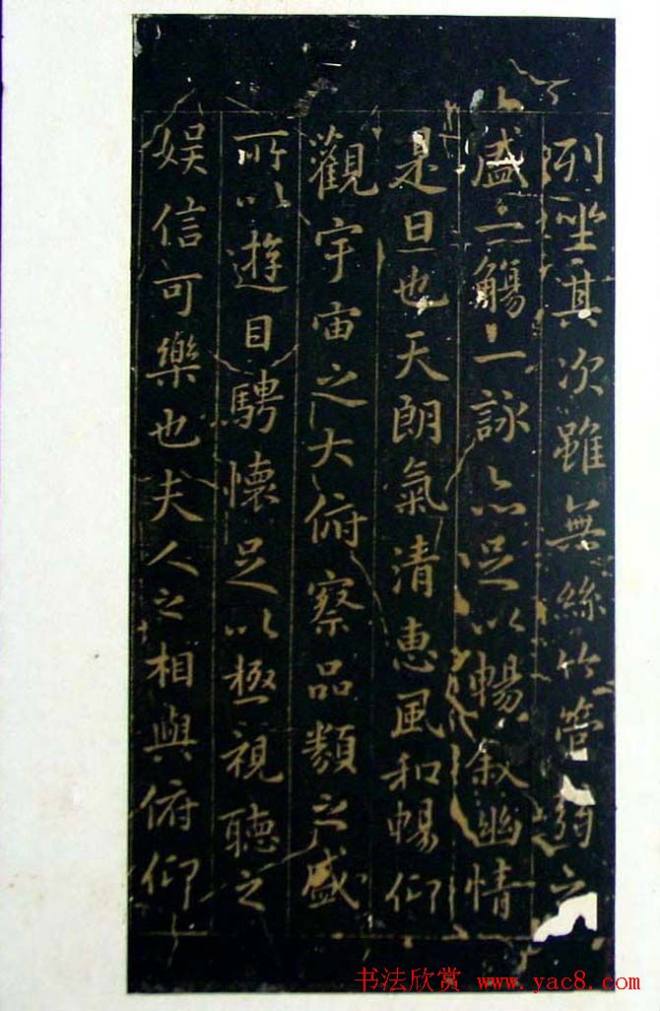 列坐其次雖無絲竹管弦之
盛一觴一詠亦足以暢叙幽情
是日也天朗氣清惠風和暢仰
觀宇宙之大俯察品類之盛
所以遊目騁懷足以極視聽之
娛信可樂也夫人之相與俯仰
书法欣赏 www.yac8.com